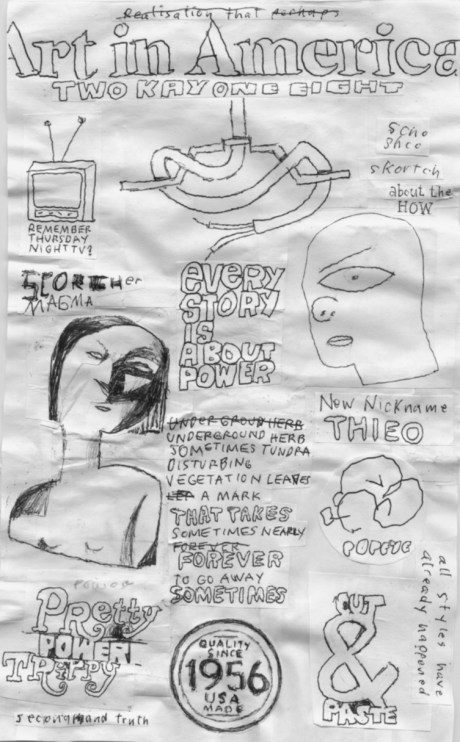 Realisation that perhaps
Art in America
TWO KAY ONE EIGHT
Scho
Shco
skortch
about the
HOW
REMEMBER
THURSDAY
NIGHT TV?
SCORTCHer
MAGMA
EVERY
STORY
IS
ABOUT
POWER
New Nickname
THIEO
UNDER GROUND HERB
UNDERGROUND HERB
SOMETIMES TUNDRA
DISTURBING
VEGETATION LEAVES
LEF A MARK
THAT TAKES
SOMETIMES NEARLY
FOREVER
FOREVER
TO GO AWAY
SOMETIMES
POPEYE
all styles have
already happened
Pretty
POWER
TRIPPY
secondhand truth
QUALITY
SINCE
1956
USA
MADE
CUT
&
PASTE